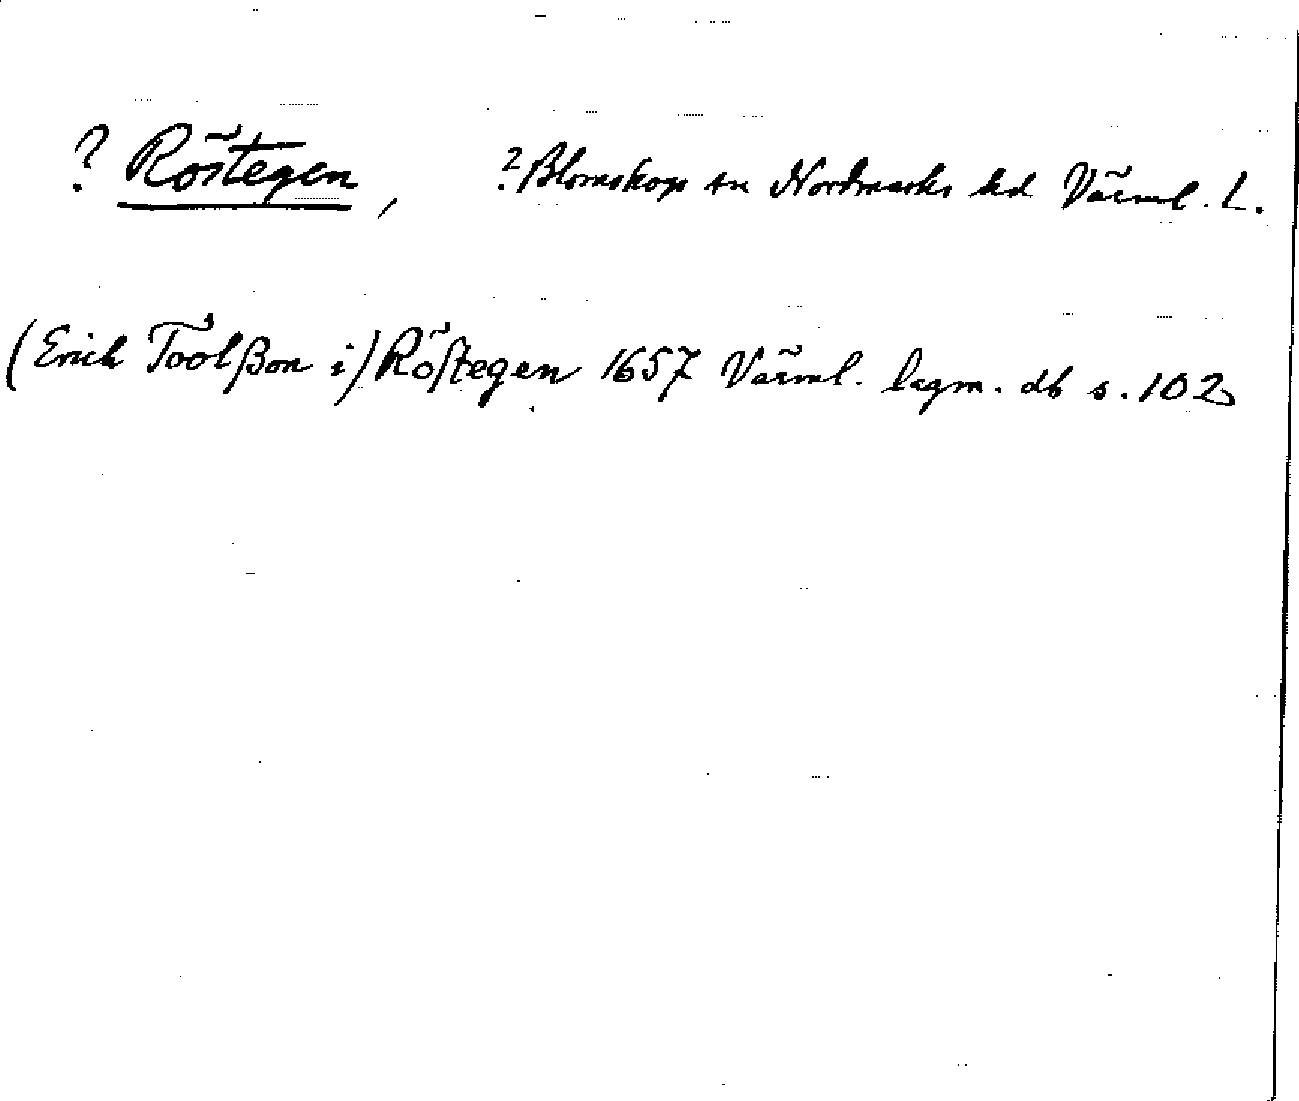 ? Röstegen, ? Blomskog sn Nordmarks hd Värml. L.
(Erich Toolßon i) Röstegen 1657 Värml. lagm. db s. 102